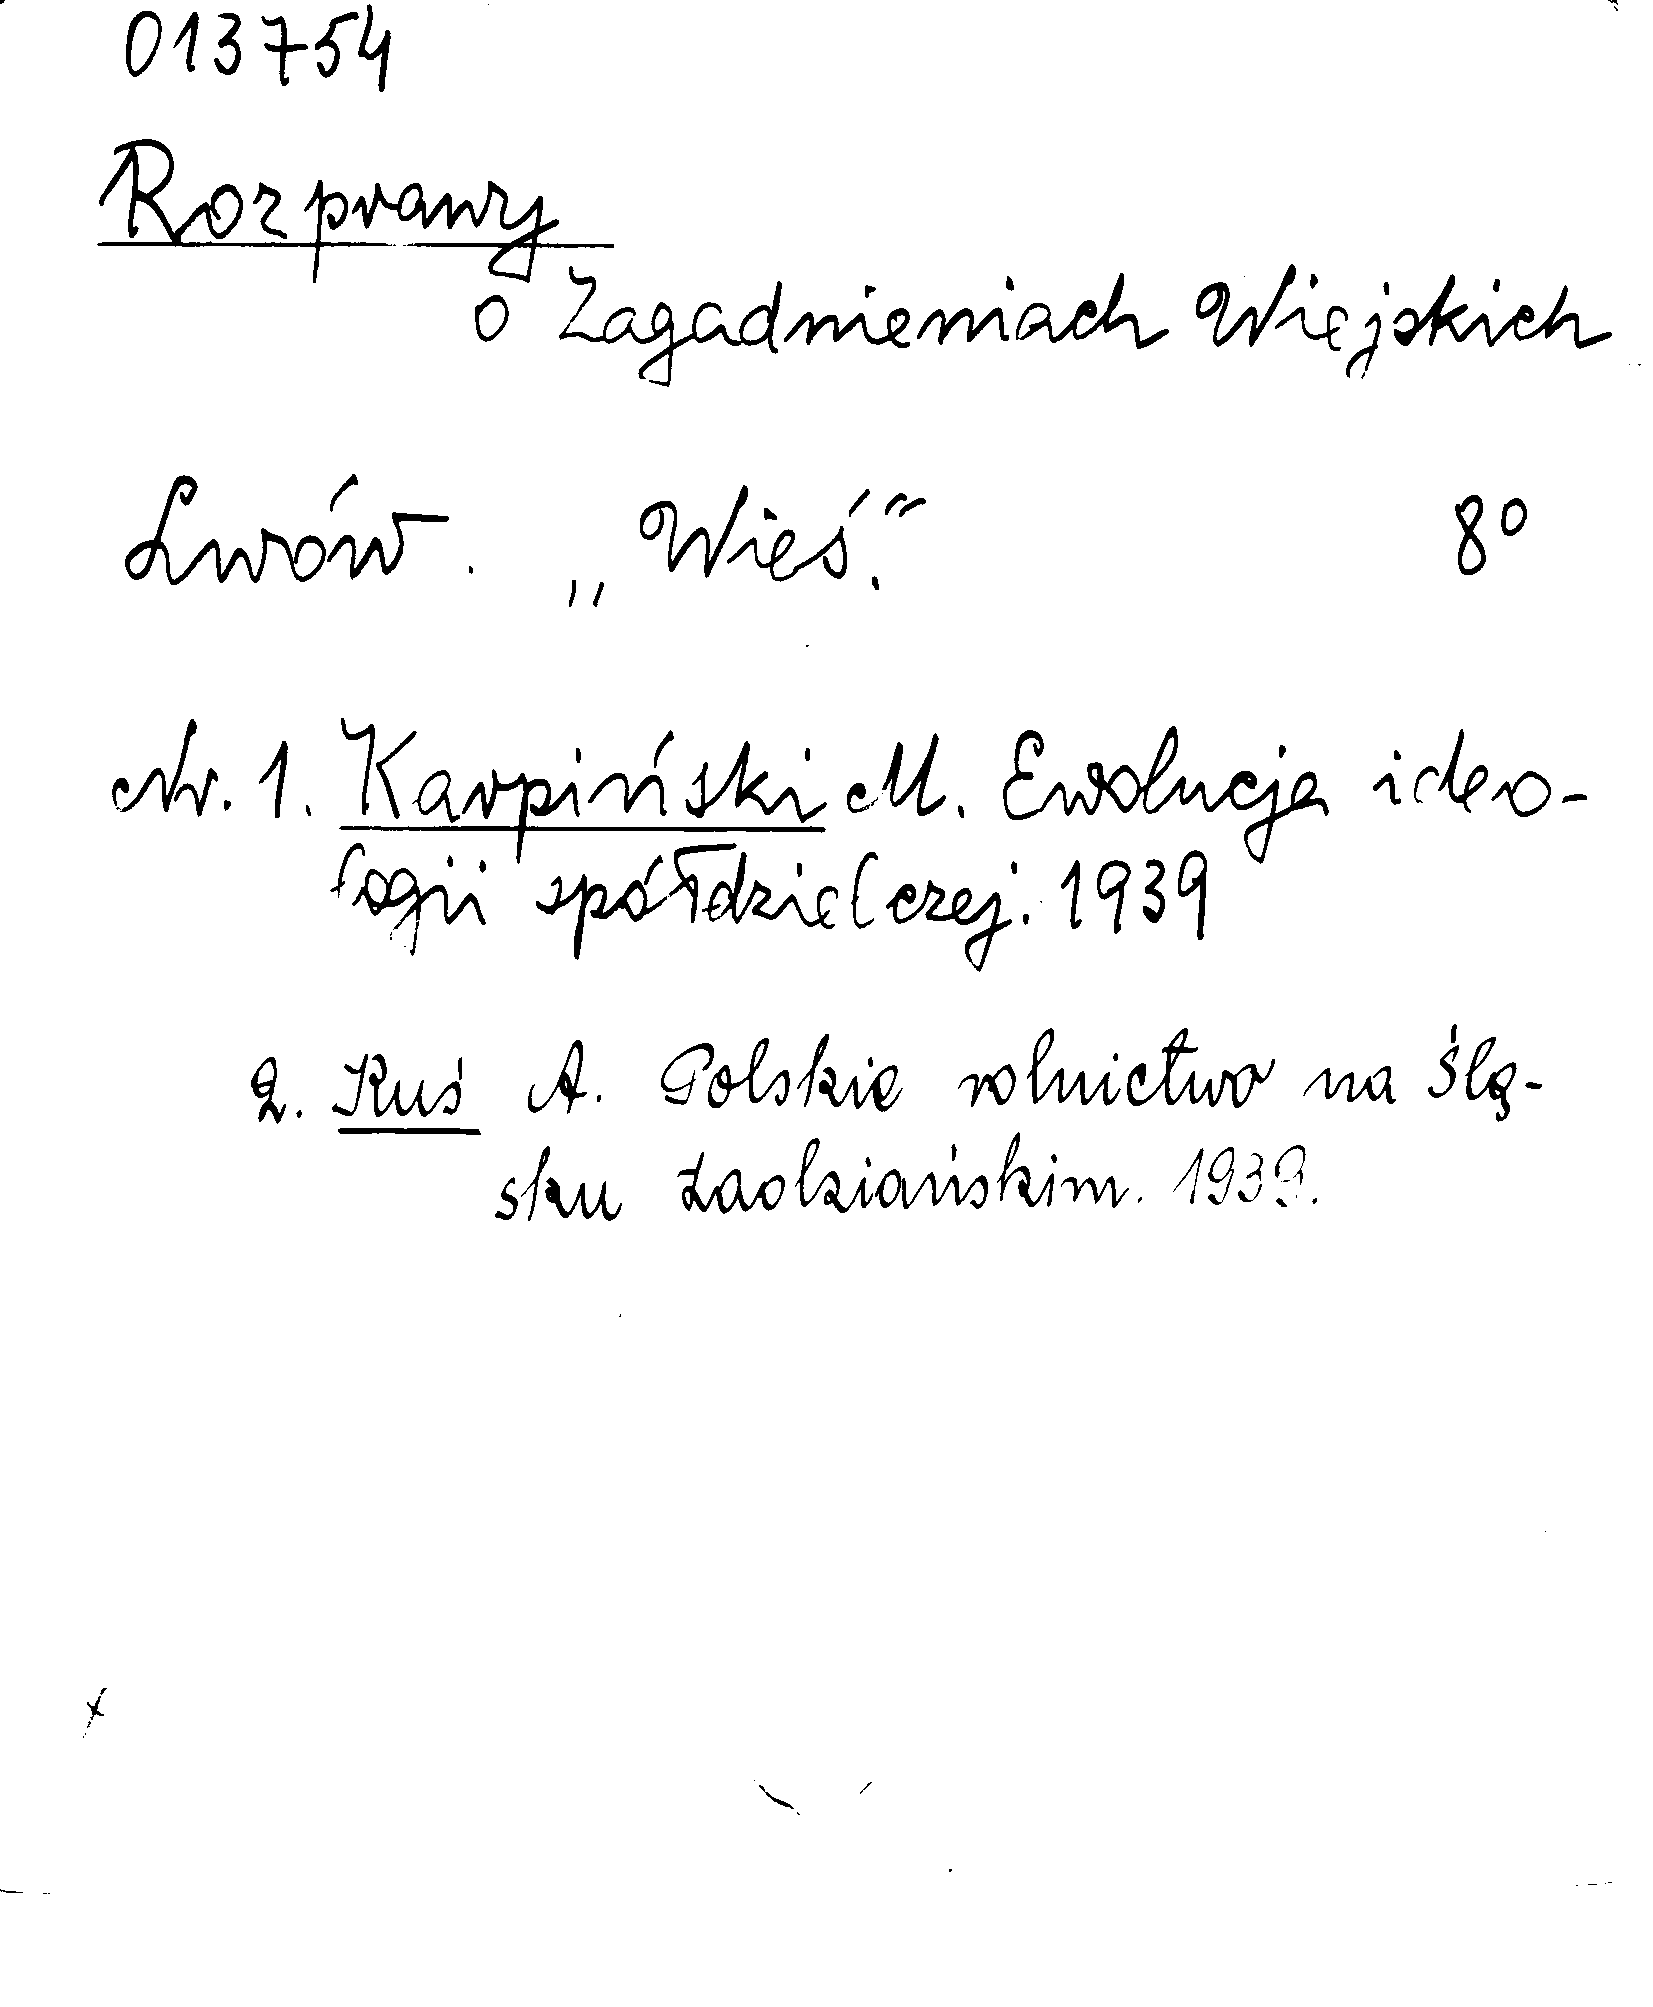 013754
Rozprawy
o Zagadnieniach Wiejskich
Lwów. „Wieś.” 8°
Nr. 1. Karpiński M. Ewolucja ideo-
logii spółdzielczej. 1939
2. Kuś A. Polskie rolnictwo na Ślą-
sku zaolziańskim. 1939.